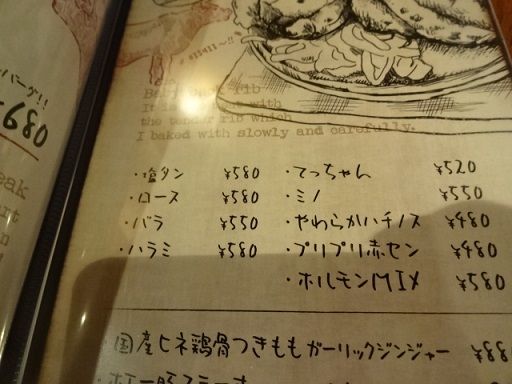 -680
It is
with
the tender rib which
I baked with slowly and carefully.
・塩タン ¥580
・ロース ¥580
・バラ ¥550
・ハラミ ¥580
・てっちゃん ¥520
・ミノ ¥550
・やわらかハチノス ¥480
・プリプリ赤セン ¥480
・ホルモンMIX ¥580
・国産ヒネ鶏骨つきももガーリックジンジャー ¥88